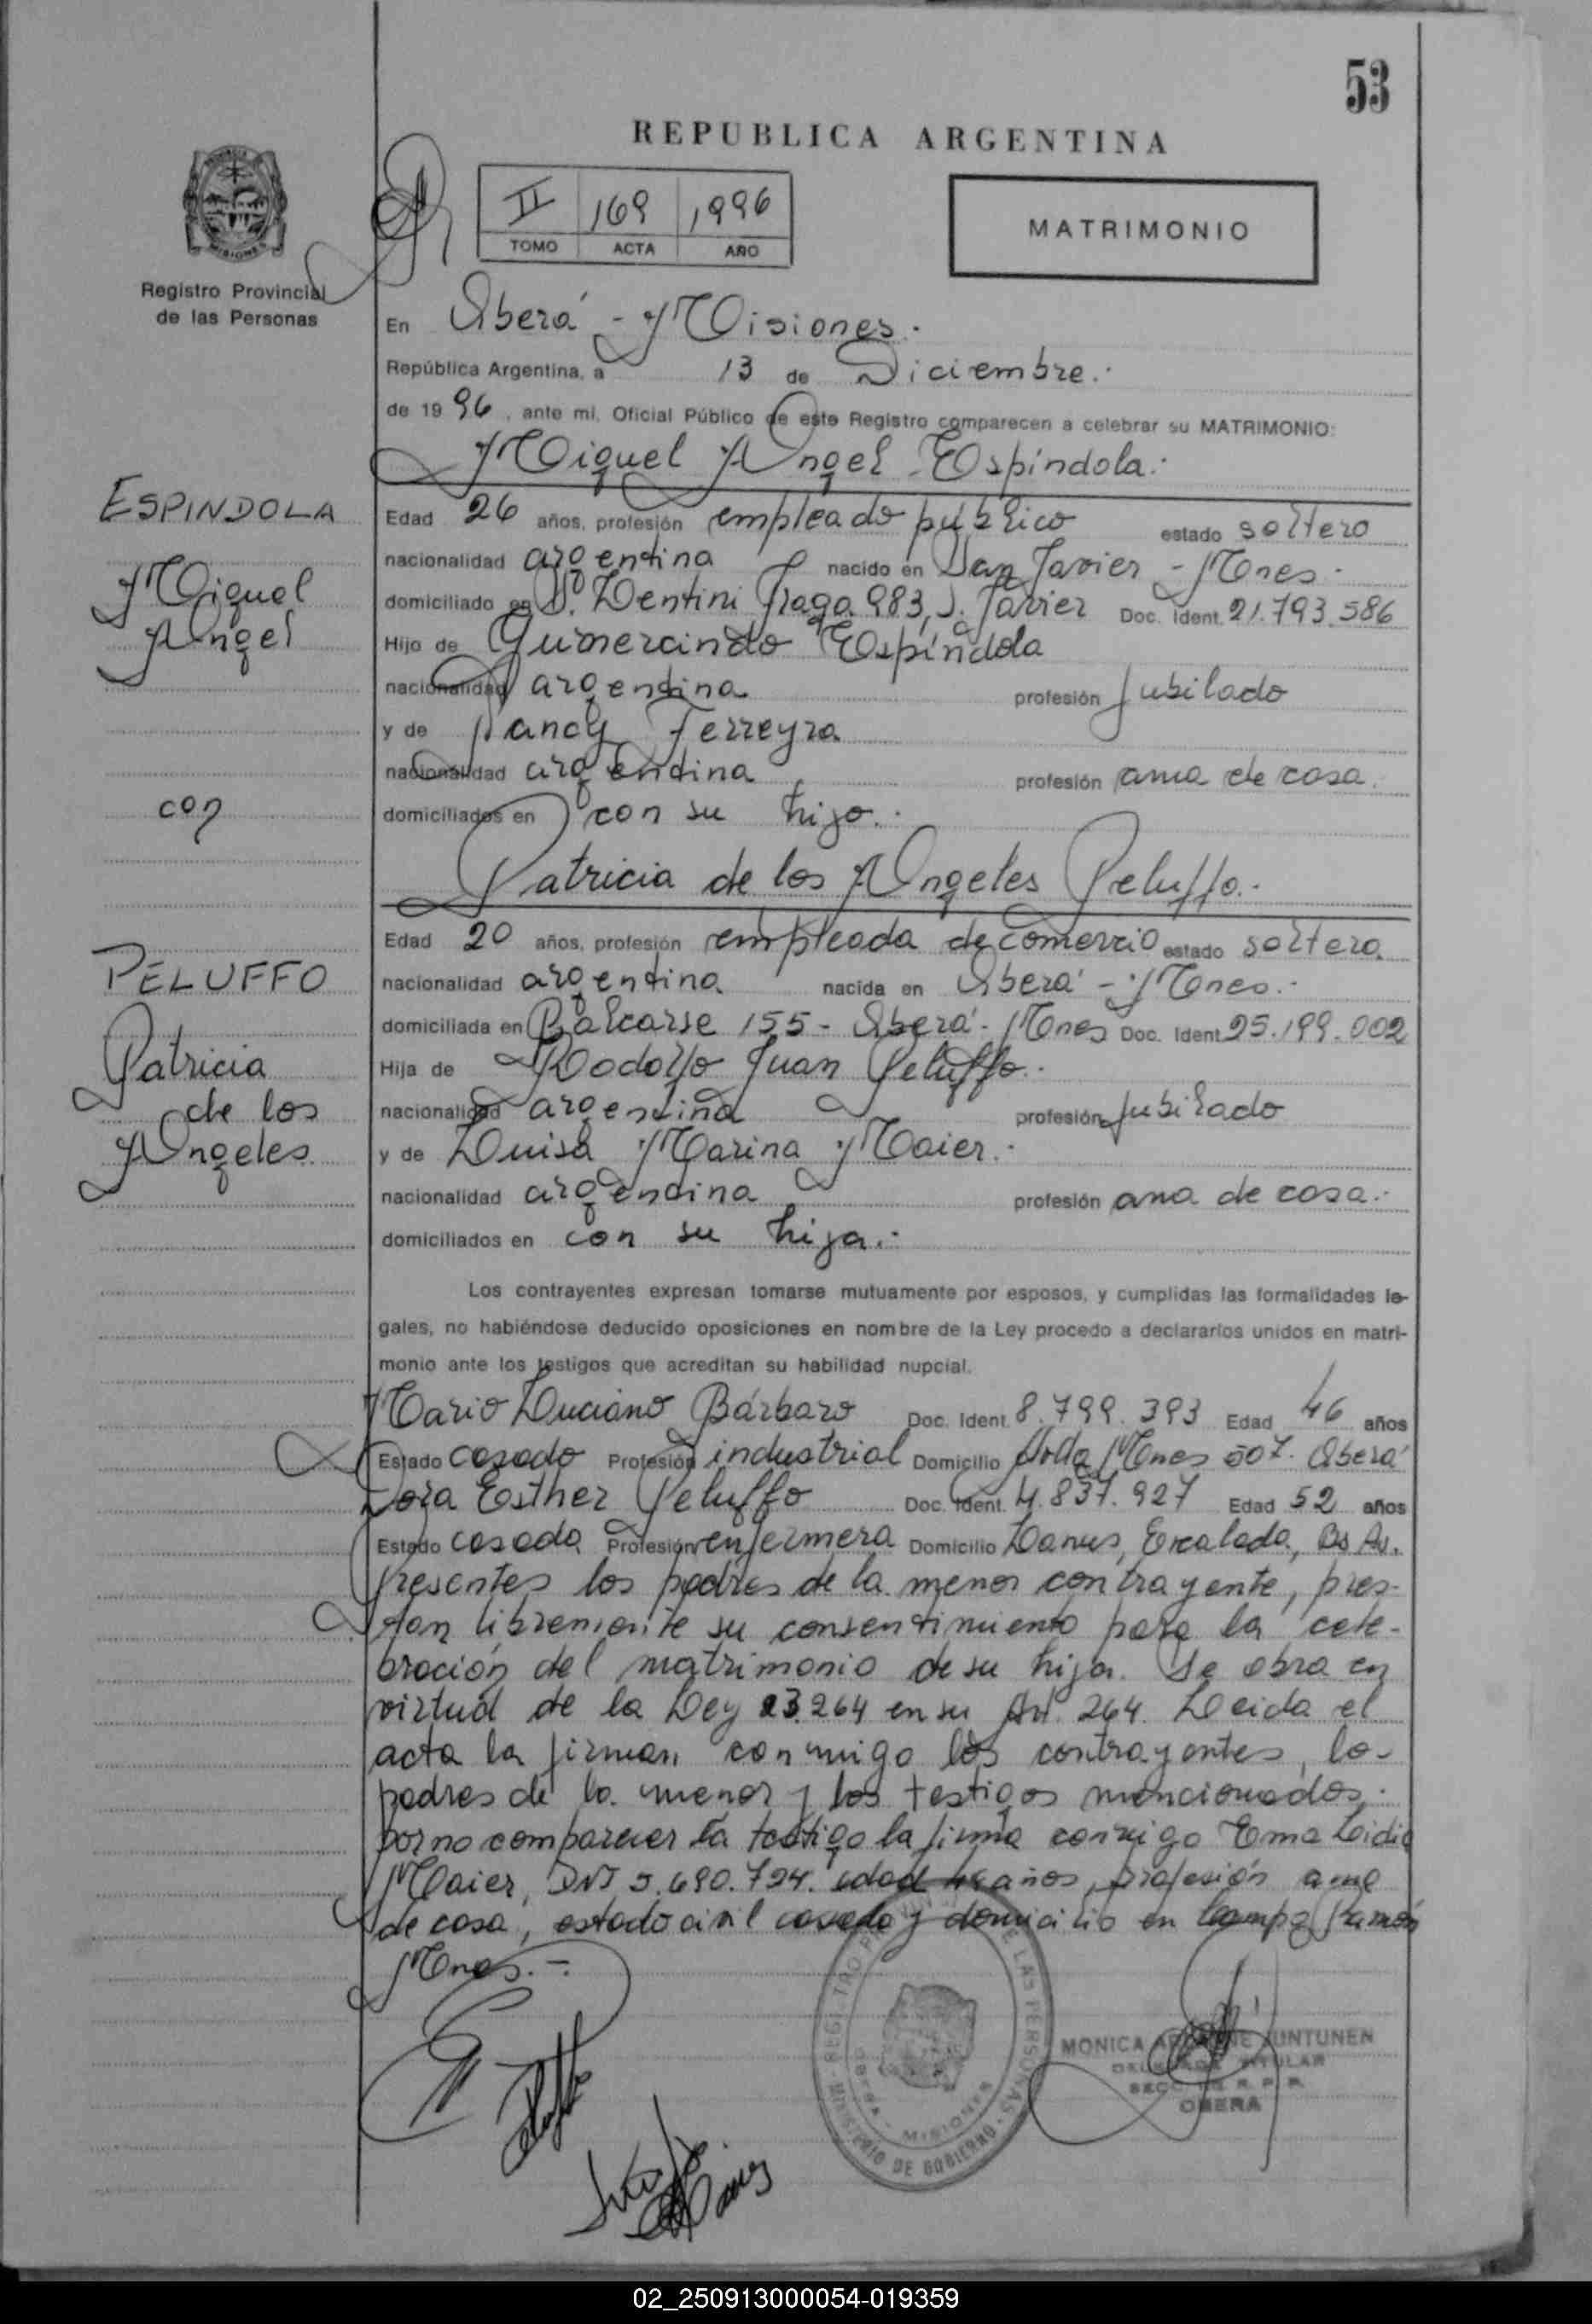 53
REPUBLICA ARGENTINA
II 169 1996
TOMO ACTA AÑO
MATRIMONIO
Registro Provincial
de las Personas
En Oberá - Misiones.-
República Argentina, a 13 de Diciembre.-
de 19 96, ante mi, Oficial Público de este Registro comparecen a celebrar su MATRIMONIO:
Miguel Angel Espíndola.-
ESPINDOLA
Miguel
Angel
con
PELUFFO
Patricia
de los
Angeles
Edad 26 años, profesión empleado público estado soltero
nacionalidad argentina nacido en San Javier - Mnes.
domiciliado en 983, S. Javier Doc. Ident. 21.793.586
Hijo de Gumercindo Espíndola
nacionalidad argentina profesión Jubilado
y de Nancy Ferreyra
nacionalidad argentina profesión ama de casa.
domiciliados en con su hijo.-
Patricia de los Angeles Peluffo.-
Edad 20 años, profesión empleada de comercio estado soltera
nacionalidad argentina nacida en Oberá - Mnes.-
domiciliada en Balcarse 155 - Oberá - Mnes Doc. Ident. 25.199.002
Hija de Rodolfo Juan Peluffo.-
nacionalidad argentina profesión Jubilado
y de Luisa Marina Maier.-
nacionalidad argentina profesión ama de casa.-
domiciliados en con su hija.-
Los contrayentes expresan tomarse mutuamente por esposos, y cumplidas las formalidades le-
gales, no habiéndose deducido oposiciones en nombre de la Ley procedo a declararlos unidos en matri-
monio ante los testigos que acreditan su habilidad nupcial.
Mario Luciano Bárbaro Doc. Ident. 8.799.393 Edad 46 años
Estado casado Profesión industrial Domicilio Avda Mnes 507. Oberá
Dora Esther Peluffo Doc. Ident. 4.837.927 Edad 52 años
Estado casada Profesión enfermera Domicilio Lanus, Escalada, Bs As.
Presentes los padres de la menor contrayente, pres-
tan libremente su consentimiento para la cele-
bración del matrimonio de su hija. Se obra en
virtud de la Ley 23.264 en su Art. 264. Leida el
acta la firman conmigo los contrayentes, lo-
padres de la menor y los testigos mencionados.
por no comparecer la testigo la firma conmigo Ema Lidia
Maier, DNI 5.690.724. edad años, profesión ama
de casa, estado civil casada y domicilio en Campo Ramón
Mnes.-
REGISTRO PROVINCIAL DE LAS PERSONAS
MINISTERIO DE GOBIERNO
OBERA - MISIONES
MONICA JUNTUNEN
DELEGADA TITULAR
SECC. R. P. P.
OBERA
02_250913000054-019359